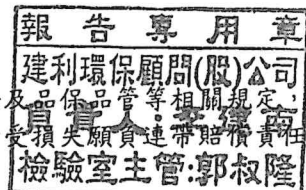 報告專用章
建利環保顧問(股)公司
及品保品管等相關規定
負責人:李
受損失願負連帶賠償責任
檢驗室主管:郭叔隆